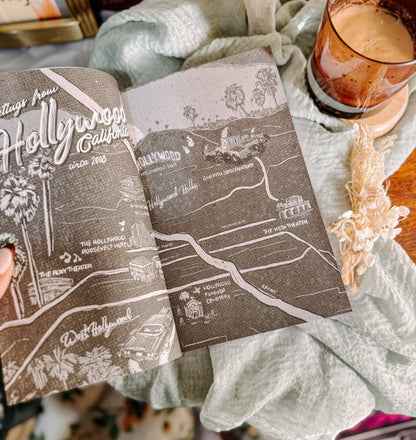 Greetings from
Hollywood
California
circa 2005
HOLLYWOOD
Hollywood Hills
GRIFFITH OBSERVATORY
THE HOLLYWOOD
ROOSEVELT HOTEL
THE ROXY THEATER
THE WITH THEATER
HOLLYWOOD
FOREVER
CEMETERY
West Hollywood